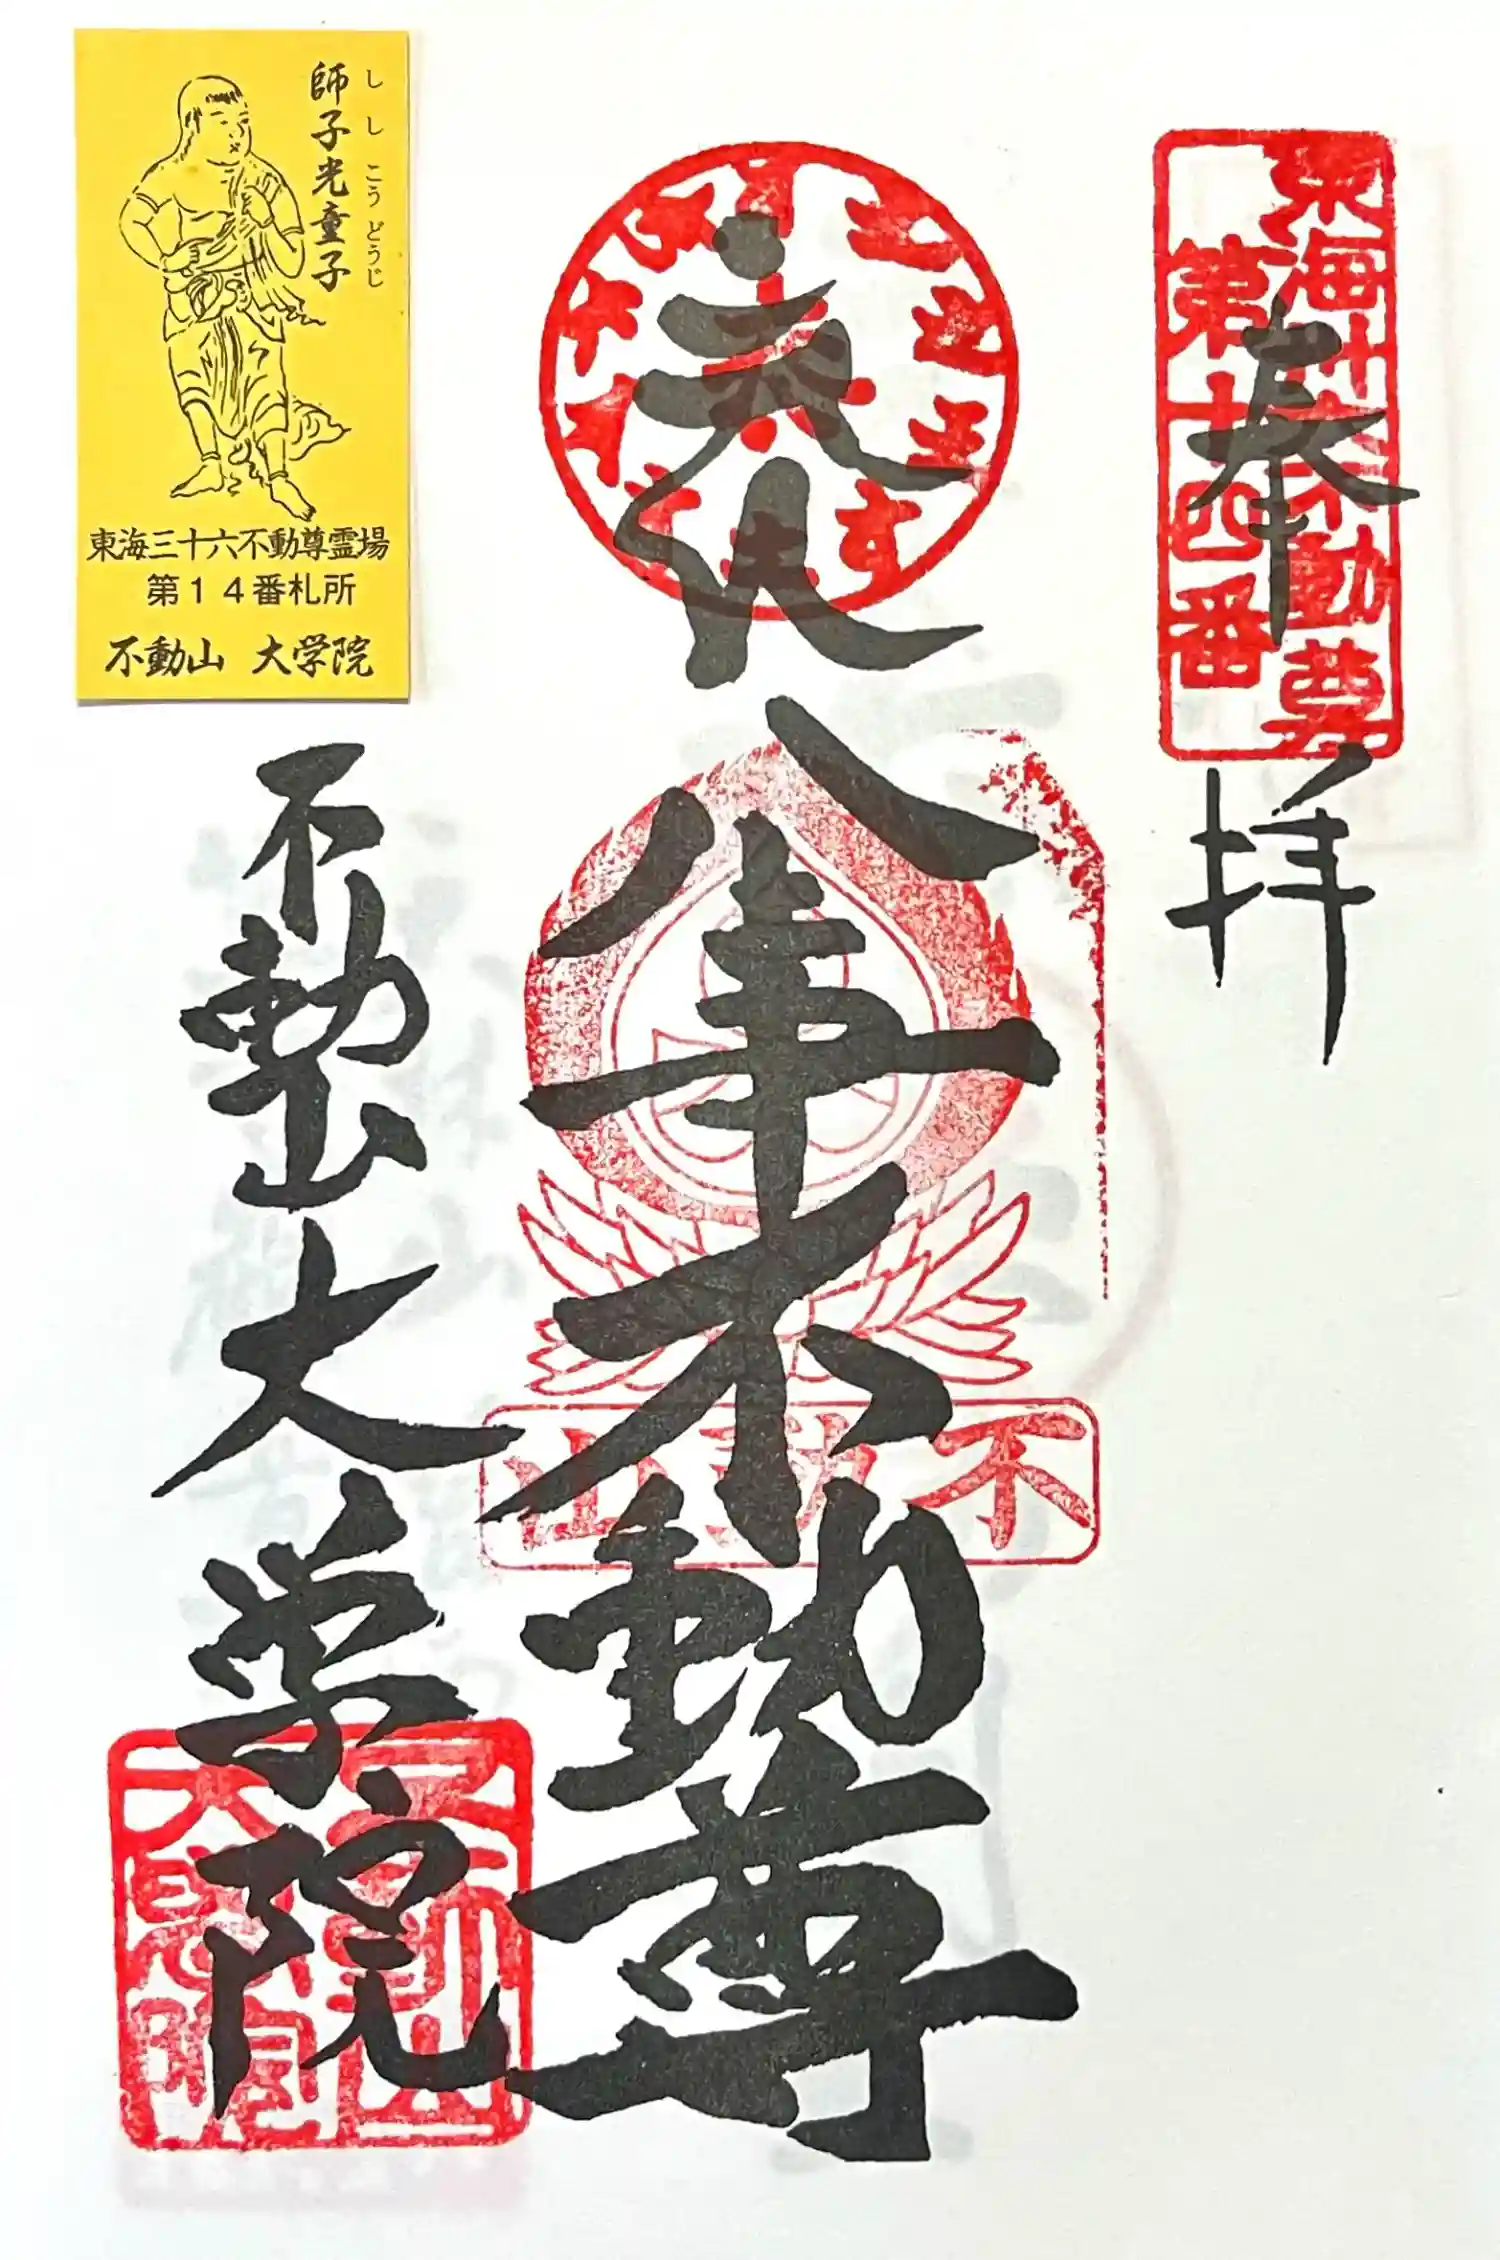 東海卅六不動尊
第十四番
奉
拝
八事不動尊
不動山
不動山大学院
師子光童子
し し こう どうじ
東海三十六不動尊霊場
第１４番札所
不動山 大学院